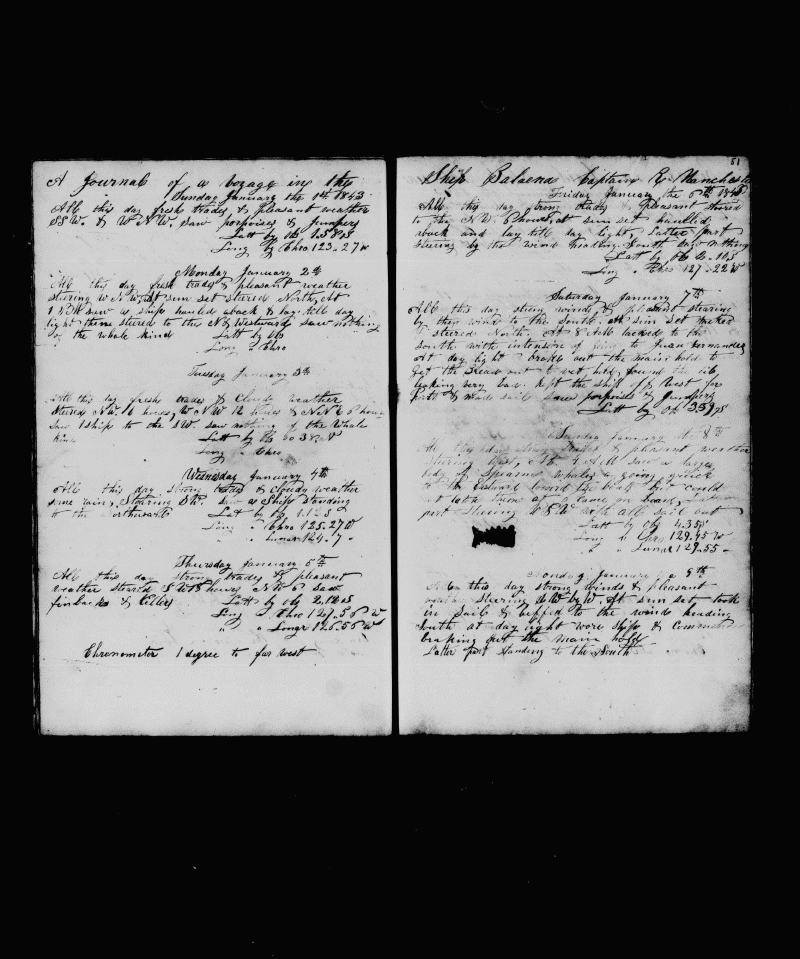 A Journal of a Voyage in the
Sunday January the 1st 1843
All this day fresh trades & pleasant weather
SSW. & WNW. saw porpoises & jumpers
Latt by Ob
Long by Chro 123-27 W
Monday January 2th
All this day fresh trades & pleasant weather
steering WNW at sun set steered North, At
1 saw a ship hauled aback & lay till day
light then steered to the N & Westward saw nothing
of the whale kind Latt by Ob
Long " Chro
Tuesday January 3th
All this day fresh trades & Cloudy weather
steered NW. 16 hours, W NW 12 hours &
Saw 1 ship to the SW. saw nothing of the Whale
kind Latt by Ob
Long " Chro
Wenesday January 4th
All this day strong trades & cloudy weather
some rain, Stearing saw a Ship standing
to the Northward Latt by Ob 1.12 S
Long " Chro 125.27 W
" Lunar 124.7 "
Thursday January 5th
All this day strong trades & pleasant
weather steered hours, NW saw
finbacks & killers Latt by Ob 2.12 S
Long " Chro 127.56 W
" " Lungr 126.56 W
Chronometer 1 degree to far west
51
Ship Balaena Captain Manchester
Friday January the 6th 1843
All this day trades & pleasant steered
to the NW. 8 hours, at sun set haulled
aback and lay till day light, Latter part
stering by the wind heading South saw nothing
Latt by Ob 2.10 S
Long " Chro 127.22 W
Saturday January 7th
All this day strong winds & pleasant stearing
by the wind to the South. At sun set tacked
& steered North. At tacked to the
South with intension of going to Juan Fernandes
At day light broke out the main hold to
get the bread out to
looking very bad. Kept the ship off West for
port & made sail saw porpoises & Jumpers
Latt by Ob 3.39 S
Sunday January the 8th
All this day strong trades & pleasant weather
steering West, At saw a large
body of Spearm Whales going quick
to the Eastward lowerd the boats but couldnt
at sun set came on board, Latter
part stearing WSW with all sail out
Latt by Ob 4.35 S
Long " Chro 129.45 W
" Lunar 129.55 "
Monday January the 9th
this day strong winds & pleasant
steering by W. At sun set took
in sail & luffed to the wind heading
South at day light wore ship & commenced
braking out the main hold
Latter part standing to the South